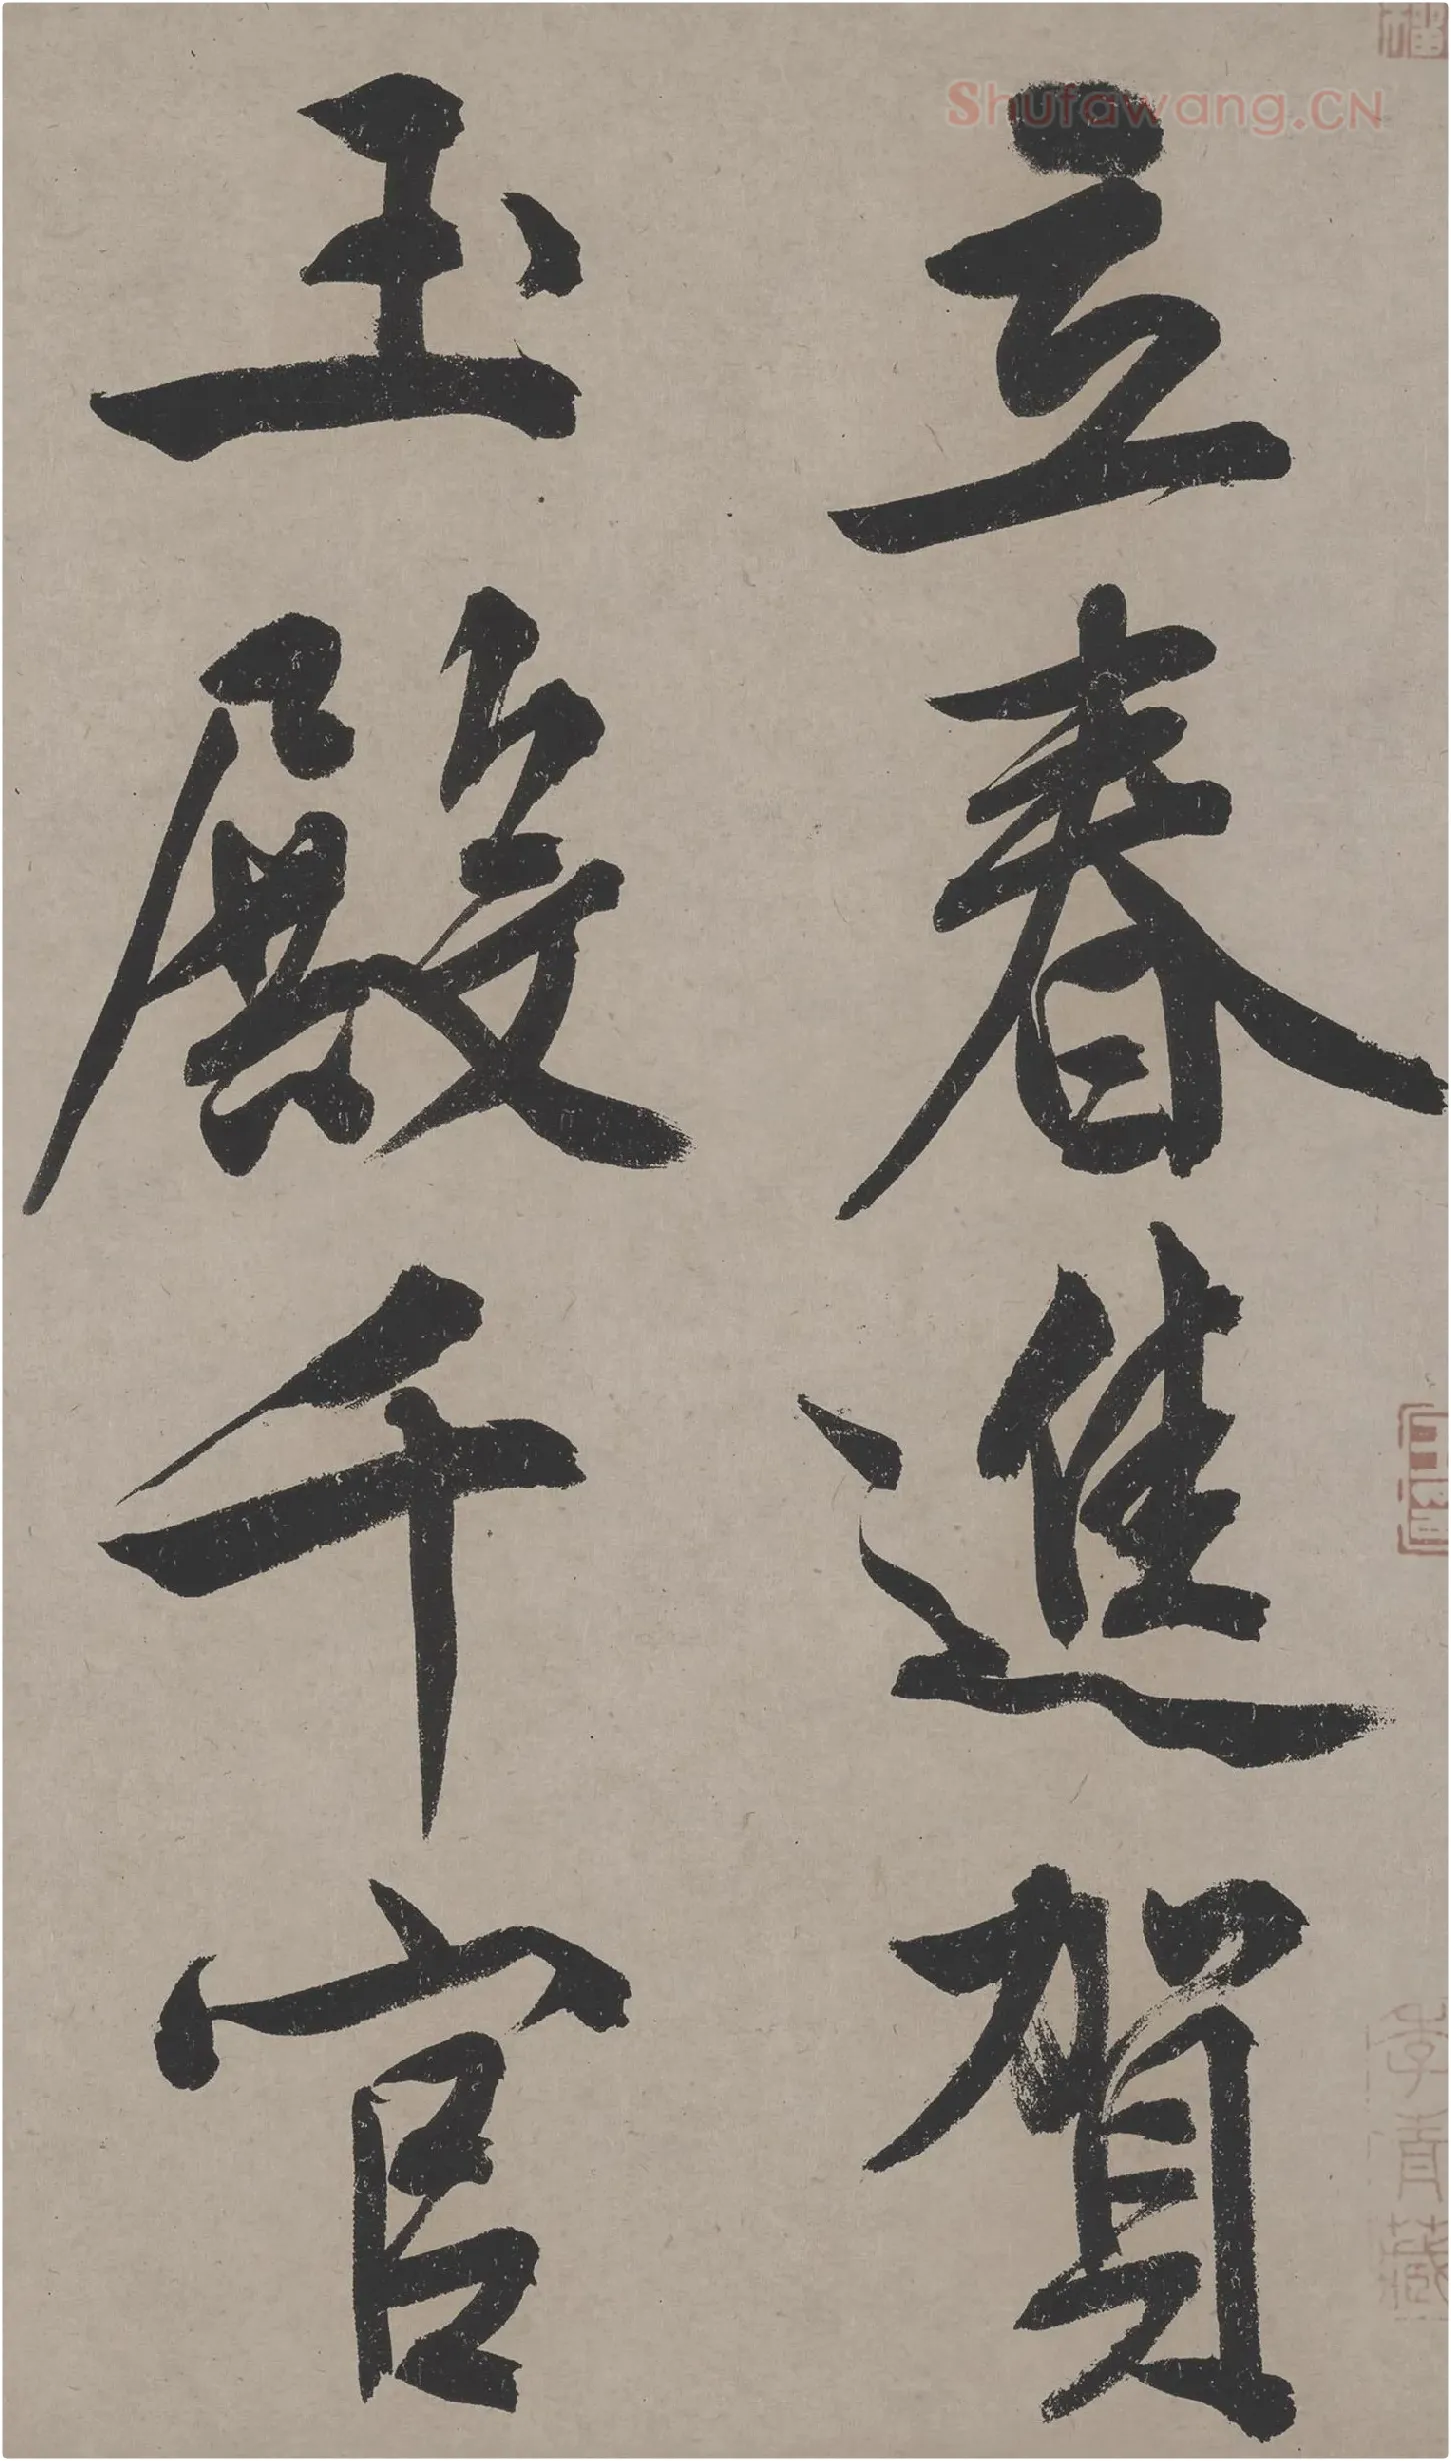 立春進賀
玉殿千官
Shufawang.CN